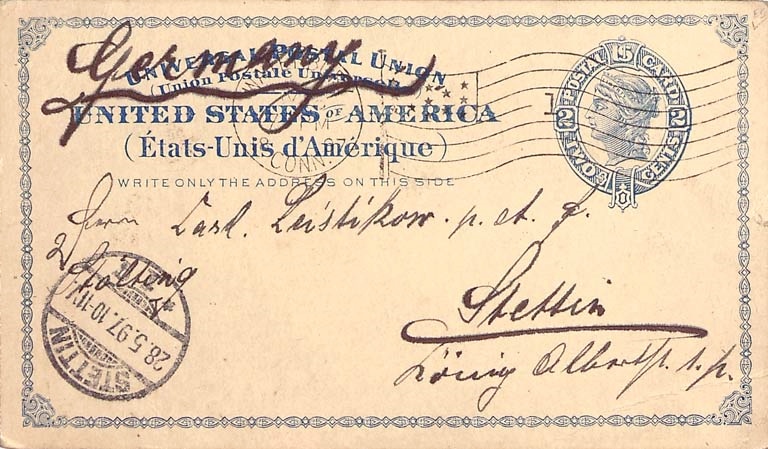 Germany
UNIVERSAL POSTAL UNION
(Union Postale Universelle)
UNITED STATES OF AMERICA
(États-Unis d'Amérique)
WRITE ONLY THE ADDRESS ON THIS SIDE
POSTAL CARD
U S
TWO CENTS
2 2
PM
CONN.
1
Herrn Carl Leistikow. p. ad.
Stettin
König Albertstr.
STETTIN
28.5.97.10-11V